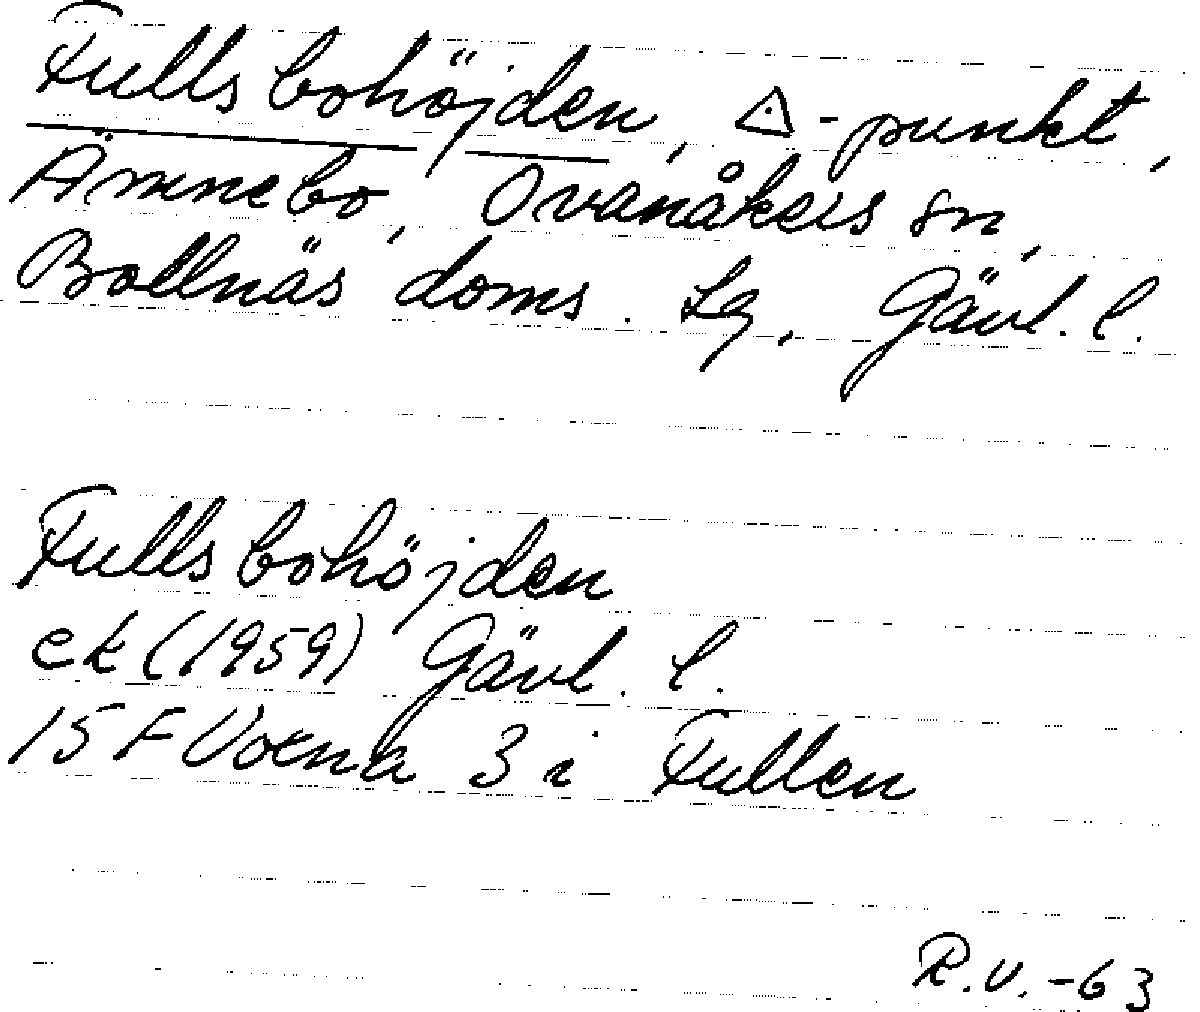 Fullsbohöjden, △-punkt,
Ämnebo, Ovanåkers sn,
Bollnäs doms. lg, Gävl. l.
Fullsbohöjden
ek (1959) Gävl. l.
15 F Voxna 3 i Fullen
R.V.-63